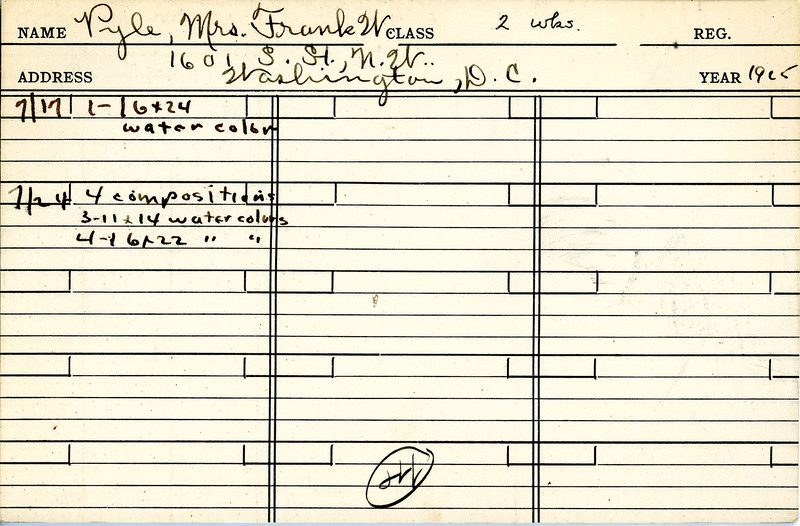 NAME Pyle, Mrs. Frank W. CLASS 2 wks. REG.
1601 S. St., N.W.
ADDRESS Washington, D.C. YEAR
7/17 1-16x24
water color
7/24 4 compositions
3-11x14 watercolors
4-16x22 " "